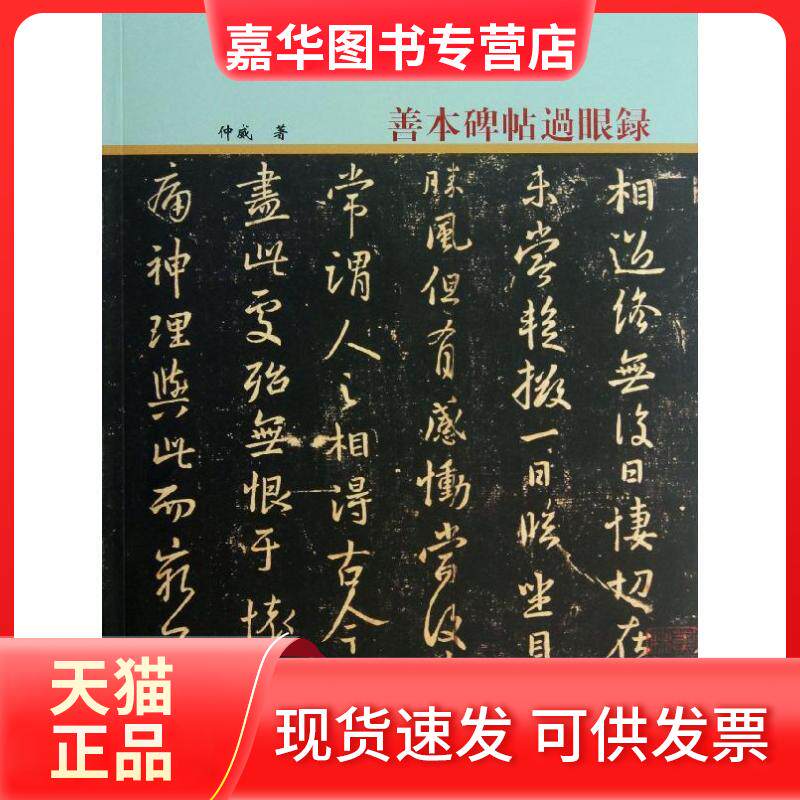 嘉华图书专营店
仲威 著
善本碑帖過眼録
相過終無復日悽切在
未嘗輕撥一日臨坐目
勝風但有感慟當復
常謂人之相得古今
盡此處殆無恨於懷
痛神理與此而窮
天猫
正品
现货速发 可供发票